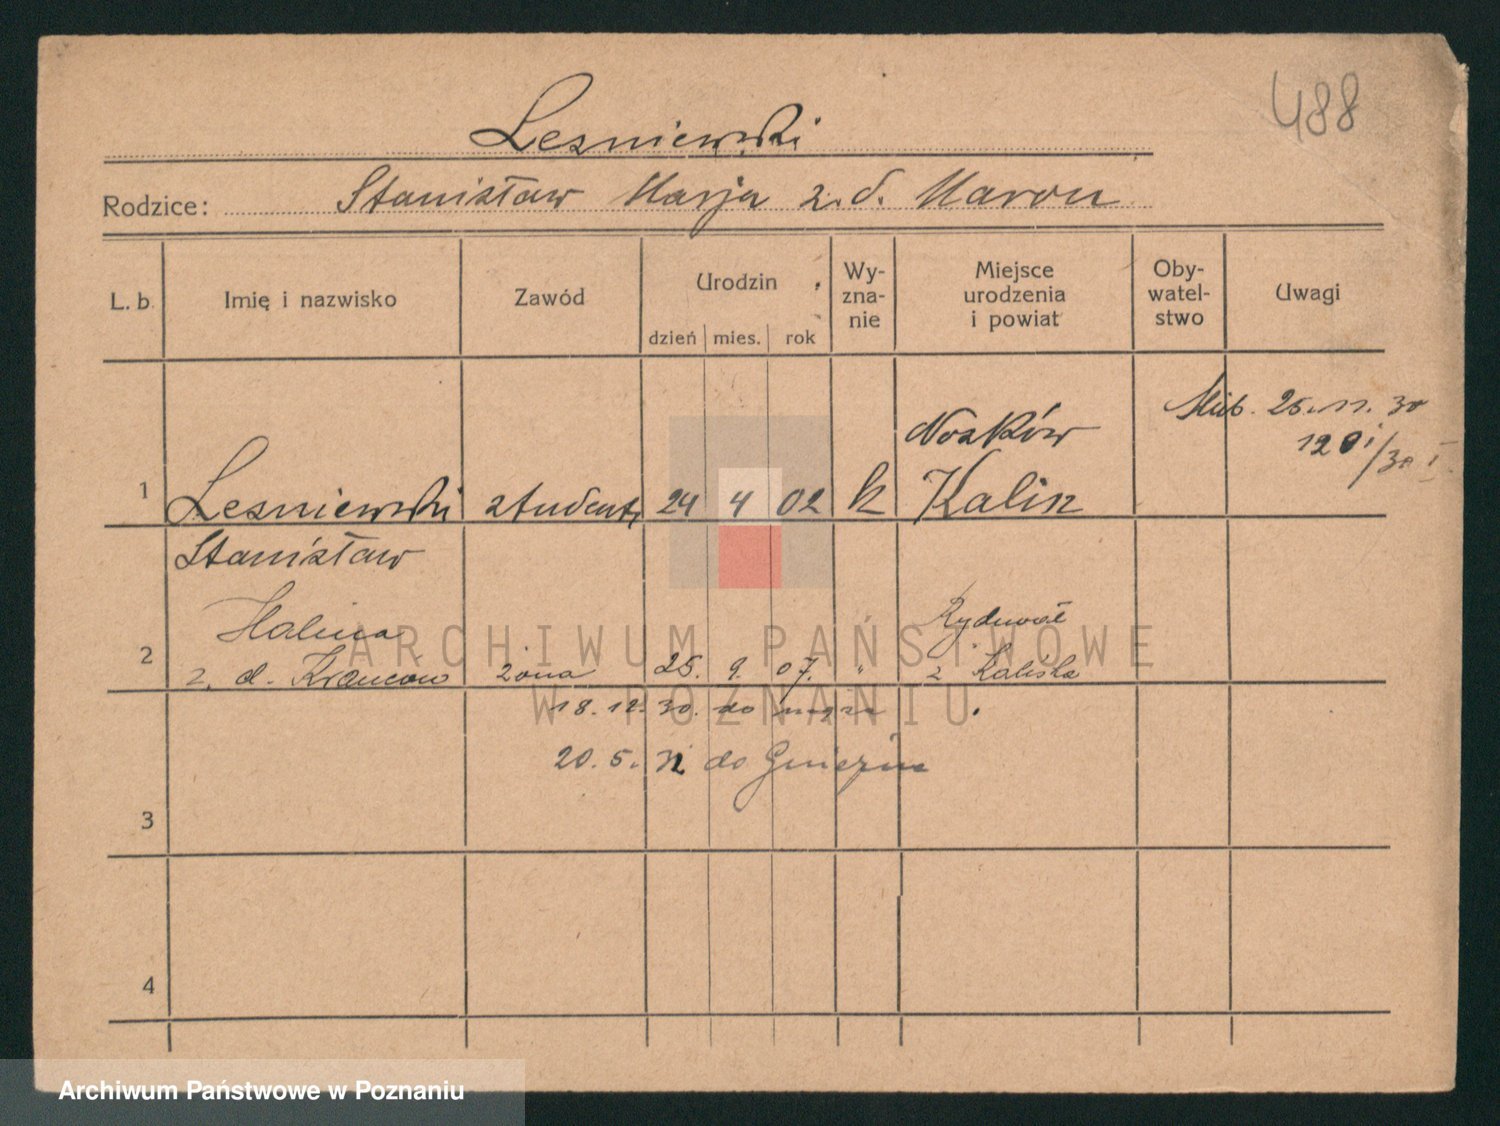 488
Leszniewski
Rodzice: Stanisław Marja z.d. Maroń
L. b. Imię i nazwisko Zawód Urodzin dzień mies. rok Wy-zna-nie Miejsce urodzenia i powiat Oby-watel-stwo Uwagi
Nosków Ślub. 25.11.30
120
1 Leszniewski student 24 4 02 k Kalisz
Stanisław
Halina
2 z. d. żona 25. 9. 07. "
18.12.30. do męża
20.5. do Gniezna
3
4
ARCHIWUM PAŃSTWOWE
W POZNANIU
Archiwum Państwowe w Poznaniu